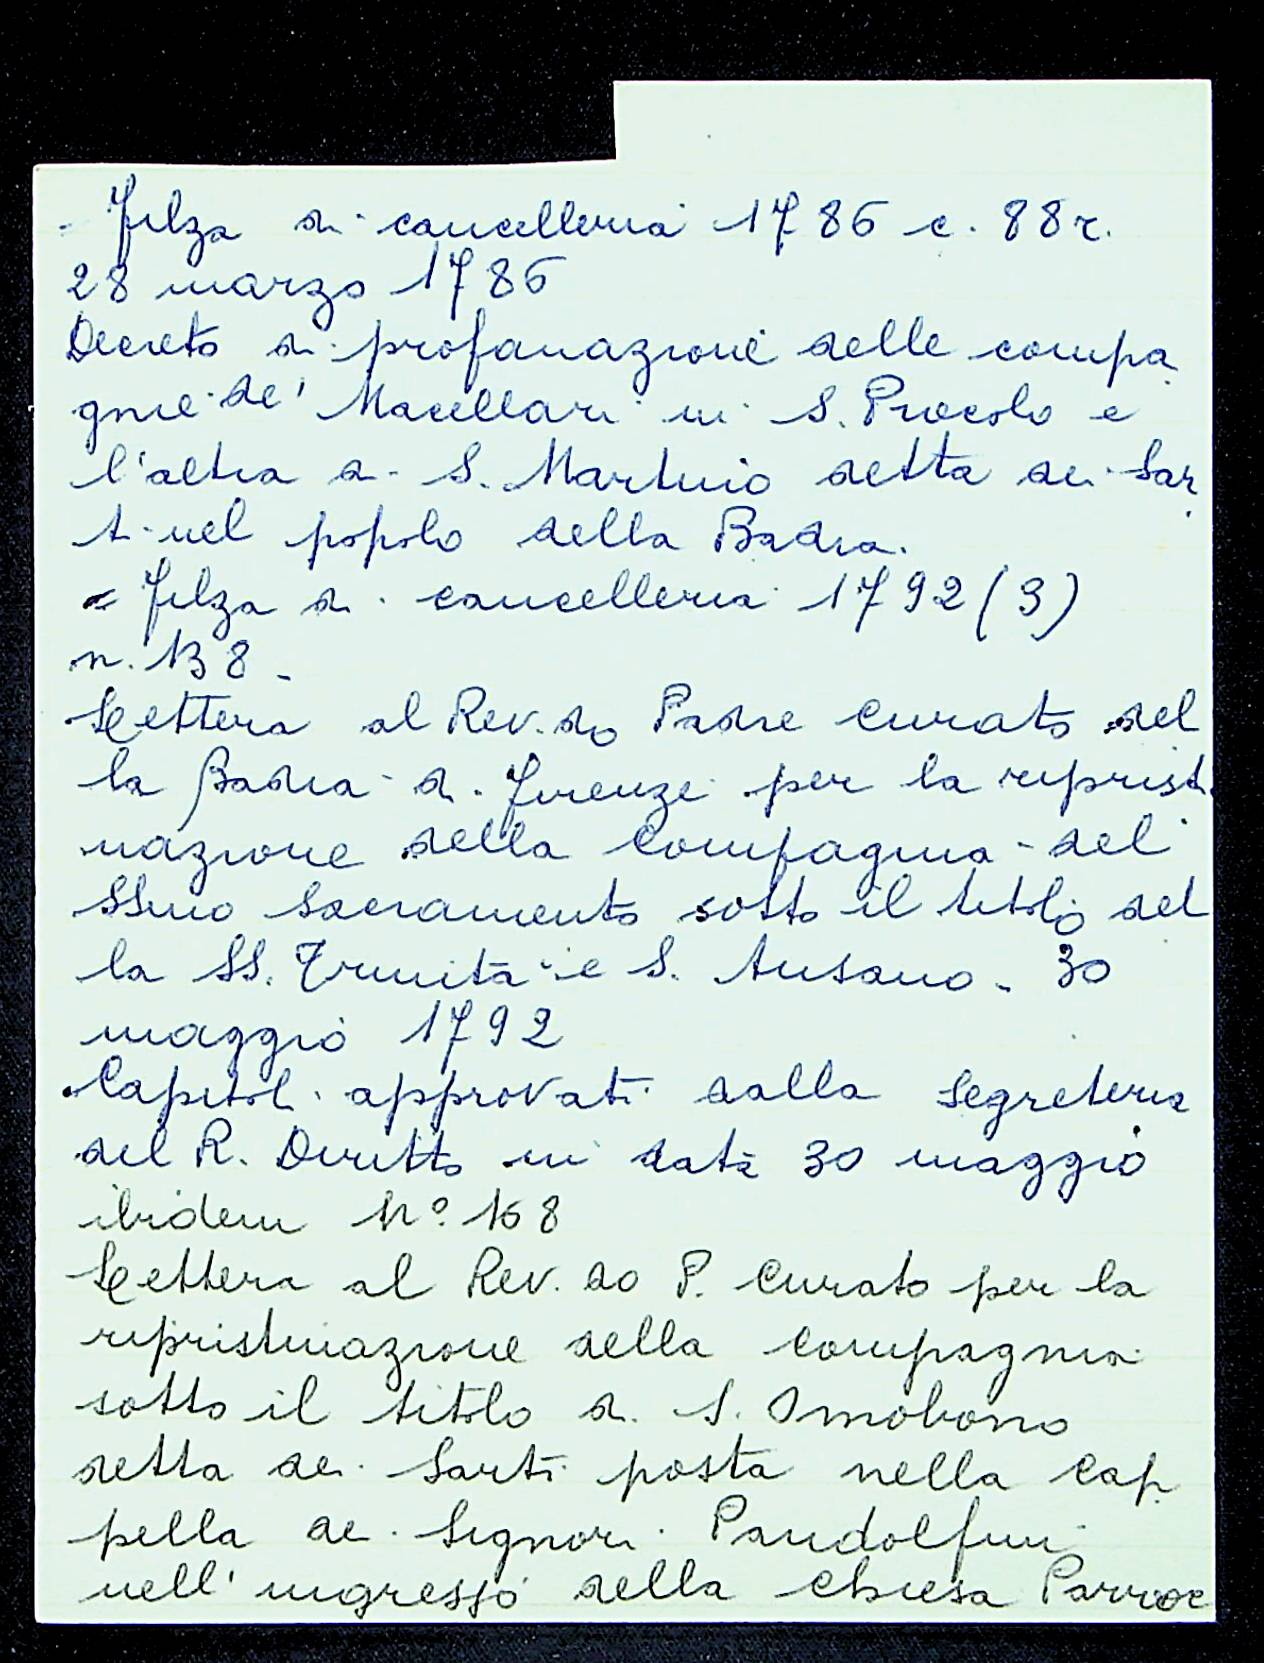 - Filza di cancelleria 1786 c. 88r.
28 marzo 1786
Decreto di profanazione delle compa
gnie de' Macellari in S. Procolo e
l'altra di S. Martino detta dei Sar
ti nel popolo della Badia.
= Filza di cancelleria 1792 (3)
n. 138 -
Lettera al Rev.do Padre Curato del
la Badia di Firenze per la ripristi
nazione della Compagnia del
SSmo Sacramento sotto il titolo del
la SS. Trinità e S. Ansano - 30
maggio 1792
Capitoli approvati dalla Segreteria
del R. Diritto in data 30 maggio
ibidem N° 168
Lettera al Rev.do P. Curato per la
ripristinazione della compagnia
sotto il titolo di S. Omobono
detta dei Sarti posta nella Cap
pella dei Signori Pandolfini
nell'ingresso della chiesa Parroc